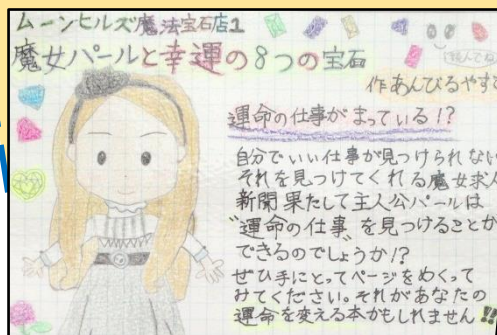 ムーンヒルズ魔法宝石店1
魔女パールと幸運の8つの宝石
読んでね
作あんびるやすこ
運命の仕事がまっている!?
自分でいい仕事が見つけられない
それを見つけてくれる魔女求人
新聞果たして主人公パールは
"運命の仕事"を見つけることが
できるのでしょうか!?
ぜひ手にとってページをめくって
みてください。それがあなたの
運命を変える本かもしれません!!